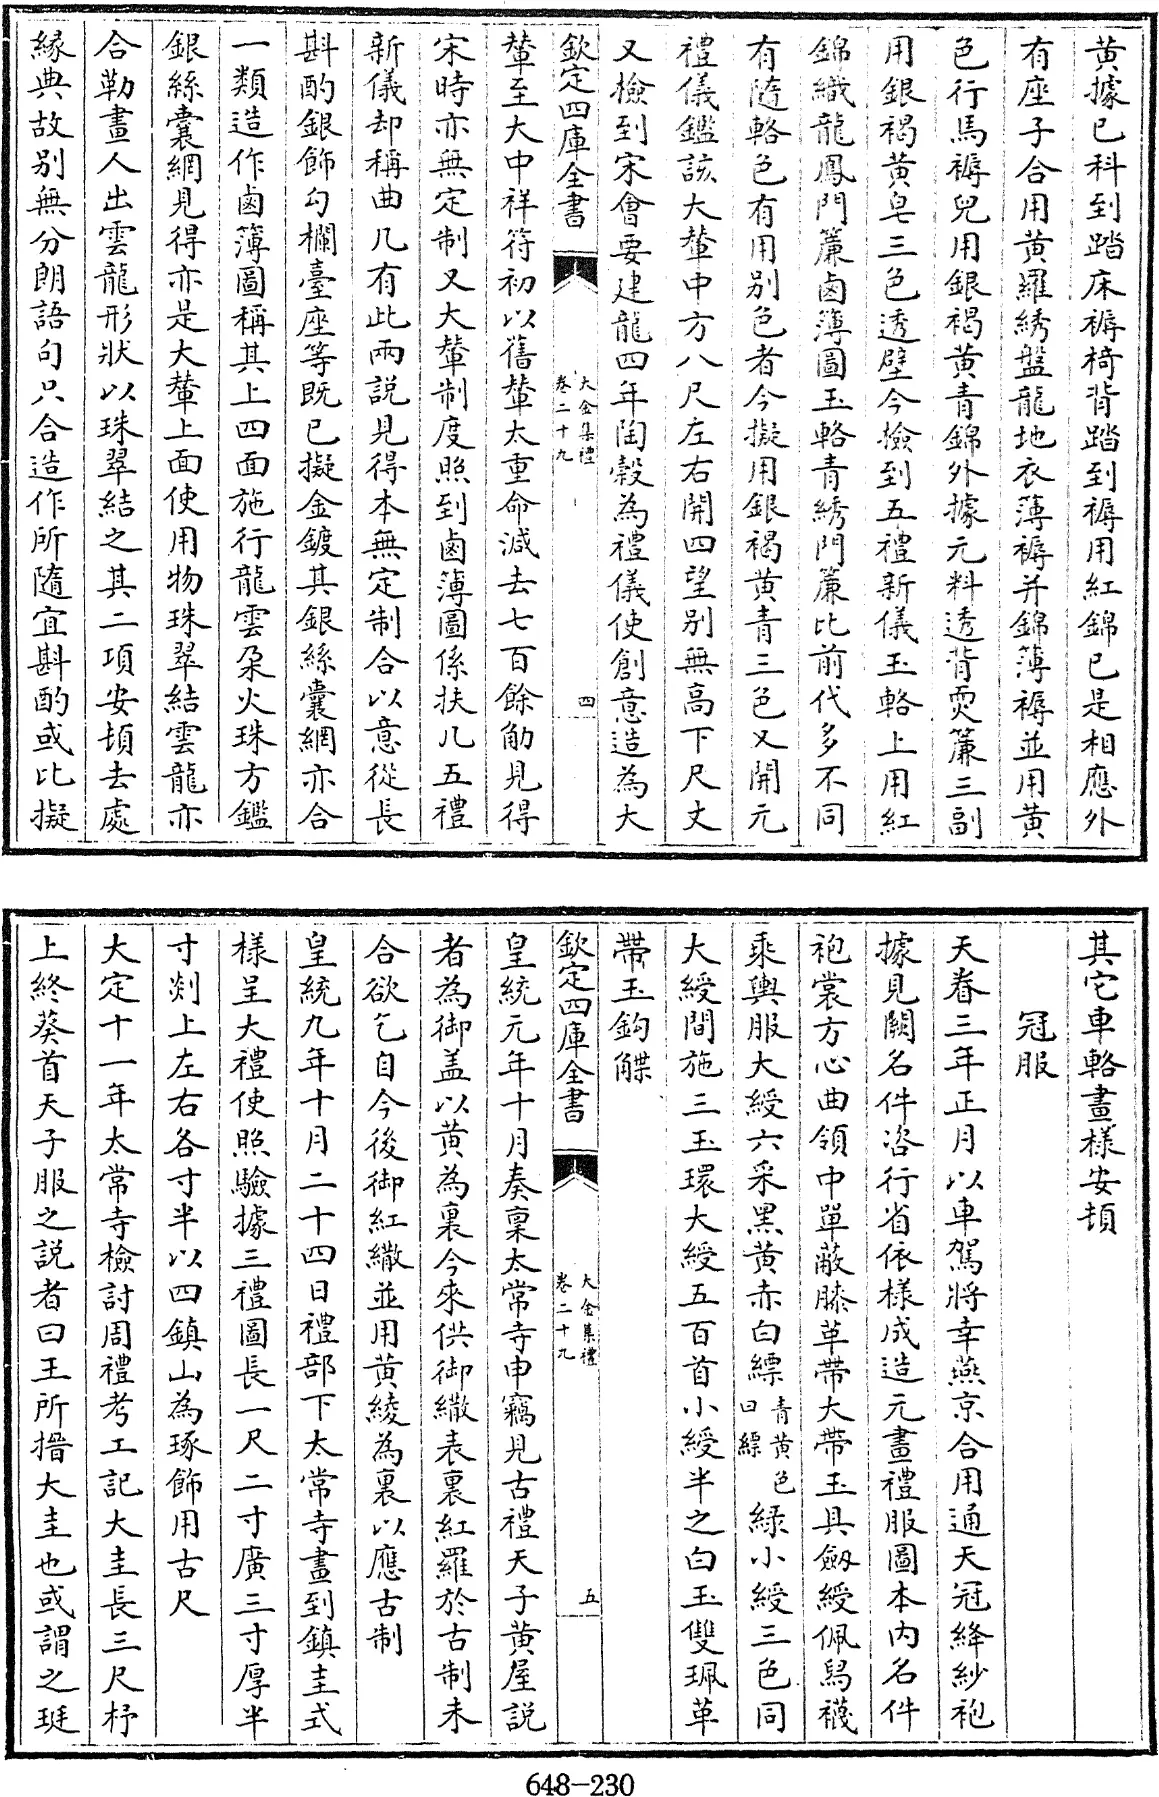 黄據已科到踏床褥椅背踏到褥用紅錦已是相應外
有座子合用黄羅綉盤龍地衣薄褥并錦薄褥並用黄
色行馬褥兒用銀褐黄青錦外據元料透背夾簾三副
用銀褐黄皂三色透壁今檢到五禮新儀玉輅上用紅
錦織龍鳳門簾鹵簿圖玉輅青綉門簾比前代多不同
有隨輅色有用别色者今擬用銀褐黄青三色又開元
禮儀鑑該大輦中方八尺左右開四望别無高下尺丈
又檢到宋會要建龍四年陶穀為禮儀使創意造為大
欽定四庫全書
大金集禮
卷二十九
四
輦至大中祥符初以舊輦太重命減去七百餘觔見得
宋時亦無定制又大輦制度照到鹵薄圖係扶几五禮
新儀却稱曲几有此兩説見得本無定制合以意從長
斟酌銀飾勾欄臺座等既已擬金鍍其銀絲囊網亦合
一類造作鹵簿圖稱其上四面施行龍雲朶火珠方鑑
銀絲囊網見得亦是大輦上面使用物珠翠結雲龍亦
合勒畫人出雲龍形狀以珠翠結之其二項安頓去處
緣典故别無分朗語句只合造作所隨宜斟酌或比擬
其它車輅畫樣安頓
冠服
天眷三年正月以車駕將幸燕京合用通天冠絳紗袍
據見闕名件咨行省依樣成造元畫禮服圖本内名件
袍裳方心曲領中單蔽膝革帶大帶玉具劔綬佩舄襪
乘輿服大綬六采黑黄赤白縹青黄色曰縹緑小綬三色同
大綬間施三玉環大綬五百首小綬半之白玉雙珮革
帶玉鈎䚢
欽定四庫全書
大金集禮
卷二十九
五
皇統元年十月奏稟太常寺申竊見古禮天子黄屋説
者為御盖以黄為裏今來供御繖表裏紅羅於古制未
合欲乞自今後御紅繖並用黄綾為裏以應古制
皇統九年十月二十四日禮部下太常寺畫到鎮圭式
樣呈大禮使照驗據三禮圖長一尺二寸廣三寸厚半
寸剡上左右各寸半以四鎮山為琢飾用古尺
大定十一年太常寺檢討周禮考工記大圭長三尺杼
上終葵首天子服之説者曰王所搢大圭也或謂之珽
648-230